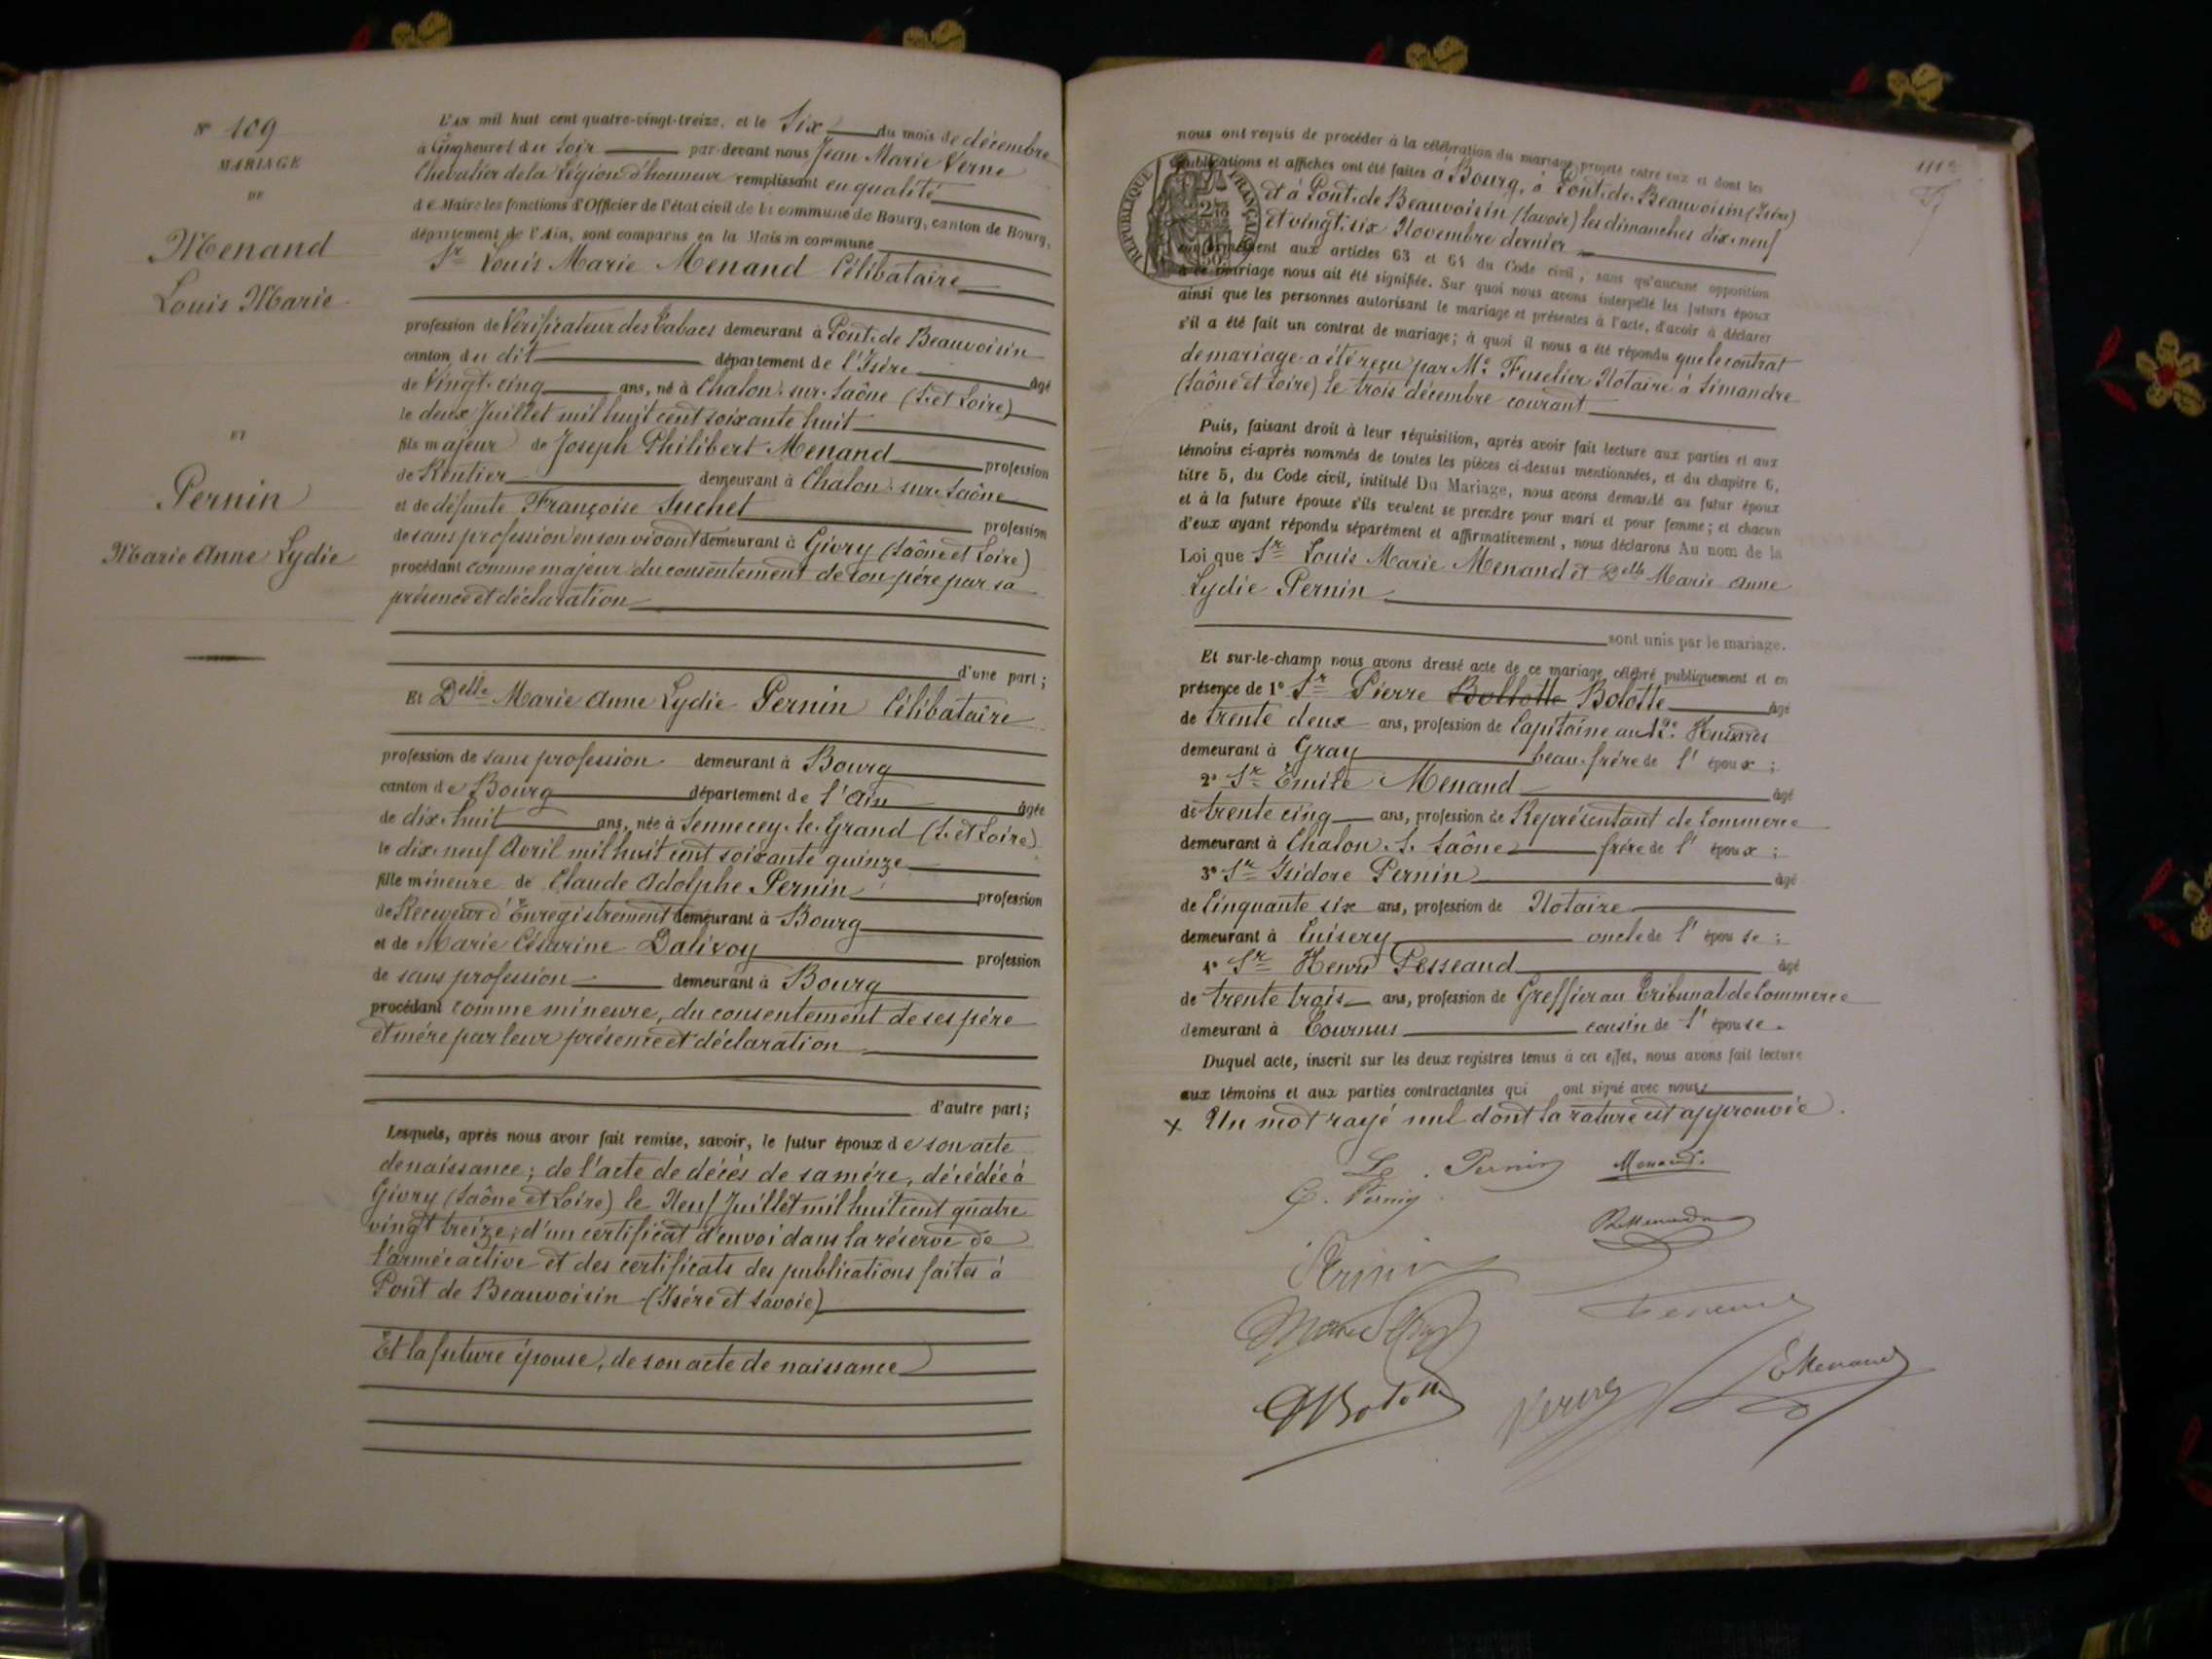 N° 109
MARIAGE
DE
Menand
Louis Marie
ET
Pernin
Marie Anne Lydie
L'AN mil huit cent quatre-vingt-treize, et le Six du mois de décembre
à Cinq heures du Soir par-devant nous Jean Marie Verne
Chevalier de la Légion d'honneur remplissant en qualité
de Maire les fonctions d'Officier de l'état civil de la commune de Bourg, canton de Bourg,
département de l'Ain, sont comparus en la Maison commune
Sr Louis Marie Menand Célibataire
profession de Vérificateur des Tabacs demeurant à Pont-de-Beauvoisin
canton du dit département de l'Isère âgé
de Vingt-cinq ans, né à Chalon-sur-Saône (S. et Loire)
le deux Juillet mil huit cent soixante huit
fils majeur de Joseph Philibert Menand profession
de Rentier demeurant à Chalon-sur-Saône
et de défunte Françoise Suchet profession
de sans profession en son vivant demeurant à Givry (Saône et Loire)
procédant comme majeur du consentement de son père par sa
présence et déclaration
d'une part;
Et Delle Marie Anne Lydie Pernin Célibataire
profession de sans profession demeurant à Bourg
canton de Bourg département de l'Ain âgée
de dix-huit ans, née à Sennecey-le-Grand (S. et Loire)
le dix-neuf Avril mil huit cent soixante quinze
fille mineure de Claude Adolphe Pernin profession
de Receveur d'Enregistrement demeurant à Bourg
et de Marie Césarine Dalivoy profession
de sans profession demeurant à Bourg
procédant comme mineure, du consentement de ses père
et mère par leur présence et déclaration
d'autre part;
Lesquels, après nous avoir fait remise, savoir, le futur époux de son acte
de naissance; de l'acte de décès de sa mère, décédée à
Givry (Saône et Loire) le Neuf Juillet mil huit cent quatre
vingt treize; d'un certificat d'envoi dans la réserve de
l'armée active et des certificats des publications faites à
Pont de Beauvoisin (Isère et Savoie)
Et la future épouse, de son acte de naissance
111
nous ont requis de procéder à la célébration du mariage projeté entre eux et dont les
publications et affiches ont été faites à Bourg, à Pont-de-Beauvoisin (Isère)
et à Pont-de-Beauvoisin (Savoie) les dimanches dix-neuf
et vingt-six Novembre dernier
RÉPUBLIQUE FRANÇAISE
conformément aux articles 63 et 64 du Code civil, sans qu'aucune opposition
à ce mariage nous ait été signifiée. Sur quoi nous avons interpellé les futurs époux
ainsi que les personnes autorisant le mariage et présentes à l'acte, d'avoir à déclarer
s'il a été fait un contrat de mariage; à quoi il nous a été répondu que le contrat
de mariage a été reçu par Me Fuselier Notaire à Simandre
(Saône et Loire) le trois décembre courant
Puis, faisant droit à leur réquisition, après avoir fait lecture aux parties et aux
témoins ci-après nommés de toutes les pièces ci-dessus mentionnées, et du chapitre 6,
titre 5, du Code civil, intitulé Du Mariage, nous avons demandé au futur époux
et à la future épouse s'ils veulent se prendre pour mari et pour femme; et chacun
d'eux ayant répondu séparément et affirmativement, nous déclarons Au nom de la
Loi que Sr Louis Marie Menand et Delle Marie Anne
Lydie Pernin
sont unis par le mariage.
Et sur-le-champ nous avons dressé acte de ce mariage, célébré publiquement et en
présence de 1° Sr Pierre Bollotte Bolotte âgé
de trente deux ans, profession de Capitaine au 12e Hussards
demeurant à Gray beau-frère de l'époux;
2° Sr Émile Menand âgé
de trente cinq ans, profession de Représentant de Commerce
demeurant à Chalon-S-Saône frère de l'époux;
3° Sr Isidore Pernin âgé
de Cinquante six ans, profession de Notaire
demeurant à Cuisery oncle de l'épouse;
4° Sr Henri Pesseaud âgé
de trente trois ans, profession de Greffier au Tribunal de Commerce
demeurant à Tournus cousin de l'épouse.
Duquel acte, inscrit sur les deux registres tenus à cet effet, nous avons fait lecture
aux témoins et aux parties contractantes qui ont signé avec nous
x Un mot rayé nul dont la rature est approuvée.
L. Pernin Menand
C. Pernin
Menand
Pernin
Bolotte Verne E Menand